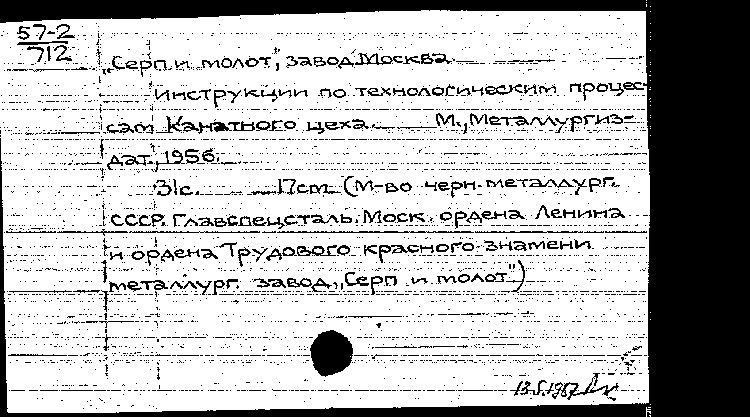 57-2
712
„Серп и молот", завод. Москва.
Инструкции по технологическим процес-
сам Канатного цеха. М., Металлургиз-
дат, 1956.
31с. 17см. (М-во черн. металлург.
СССР. Главспецсталь. Моск. ордена Ленина
и ордена Трудового красного знамени
металлург. завод „Серп и молот")
13.5.1957